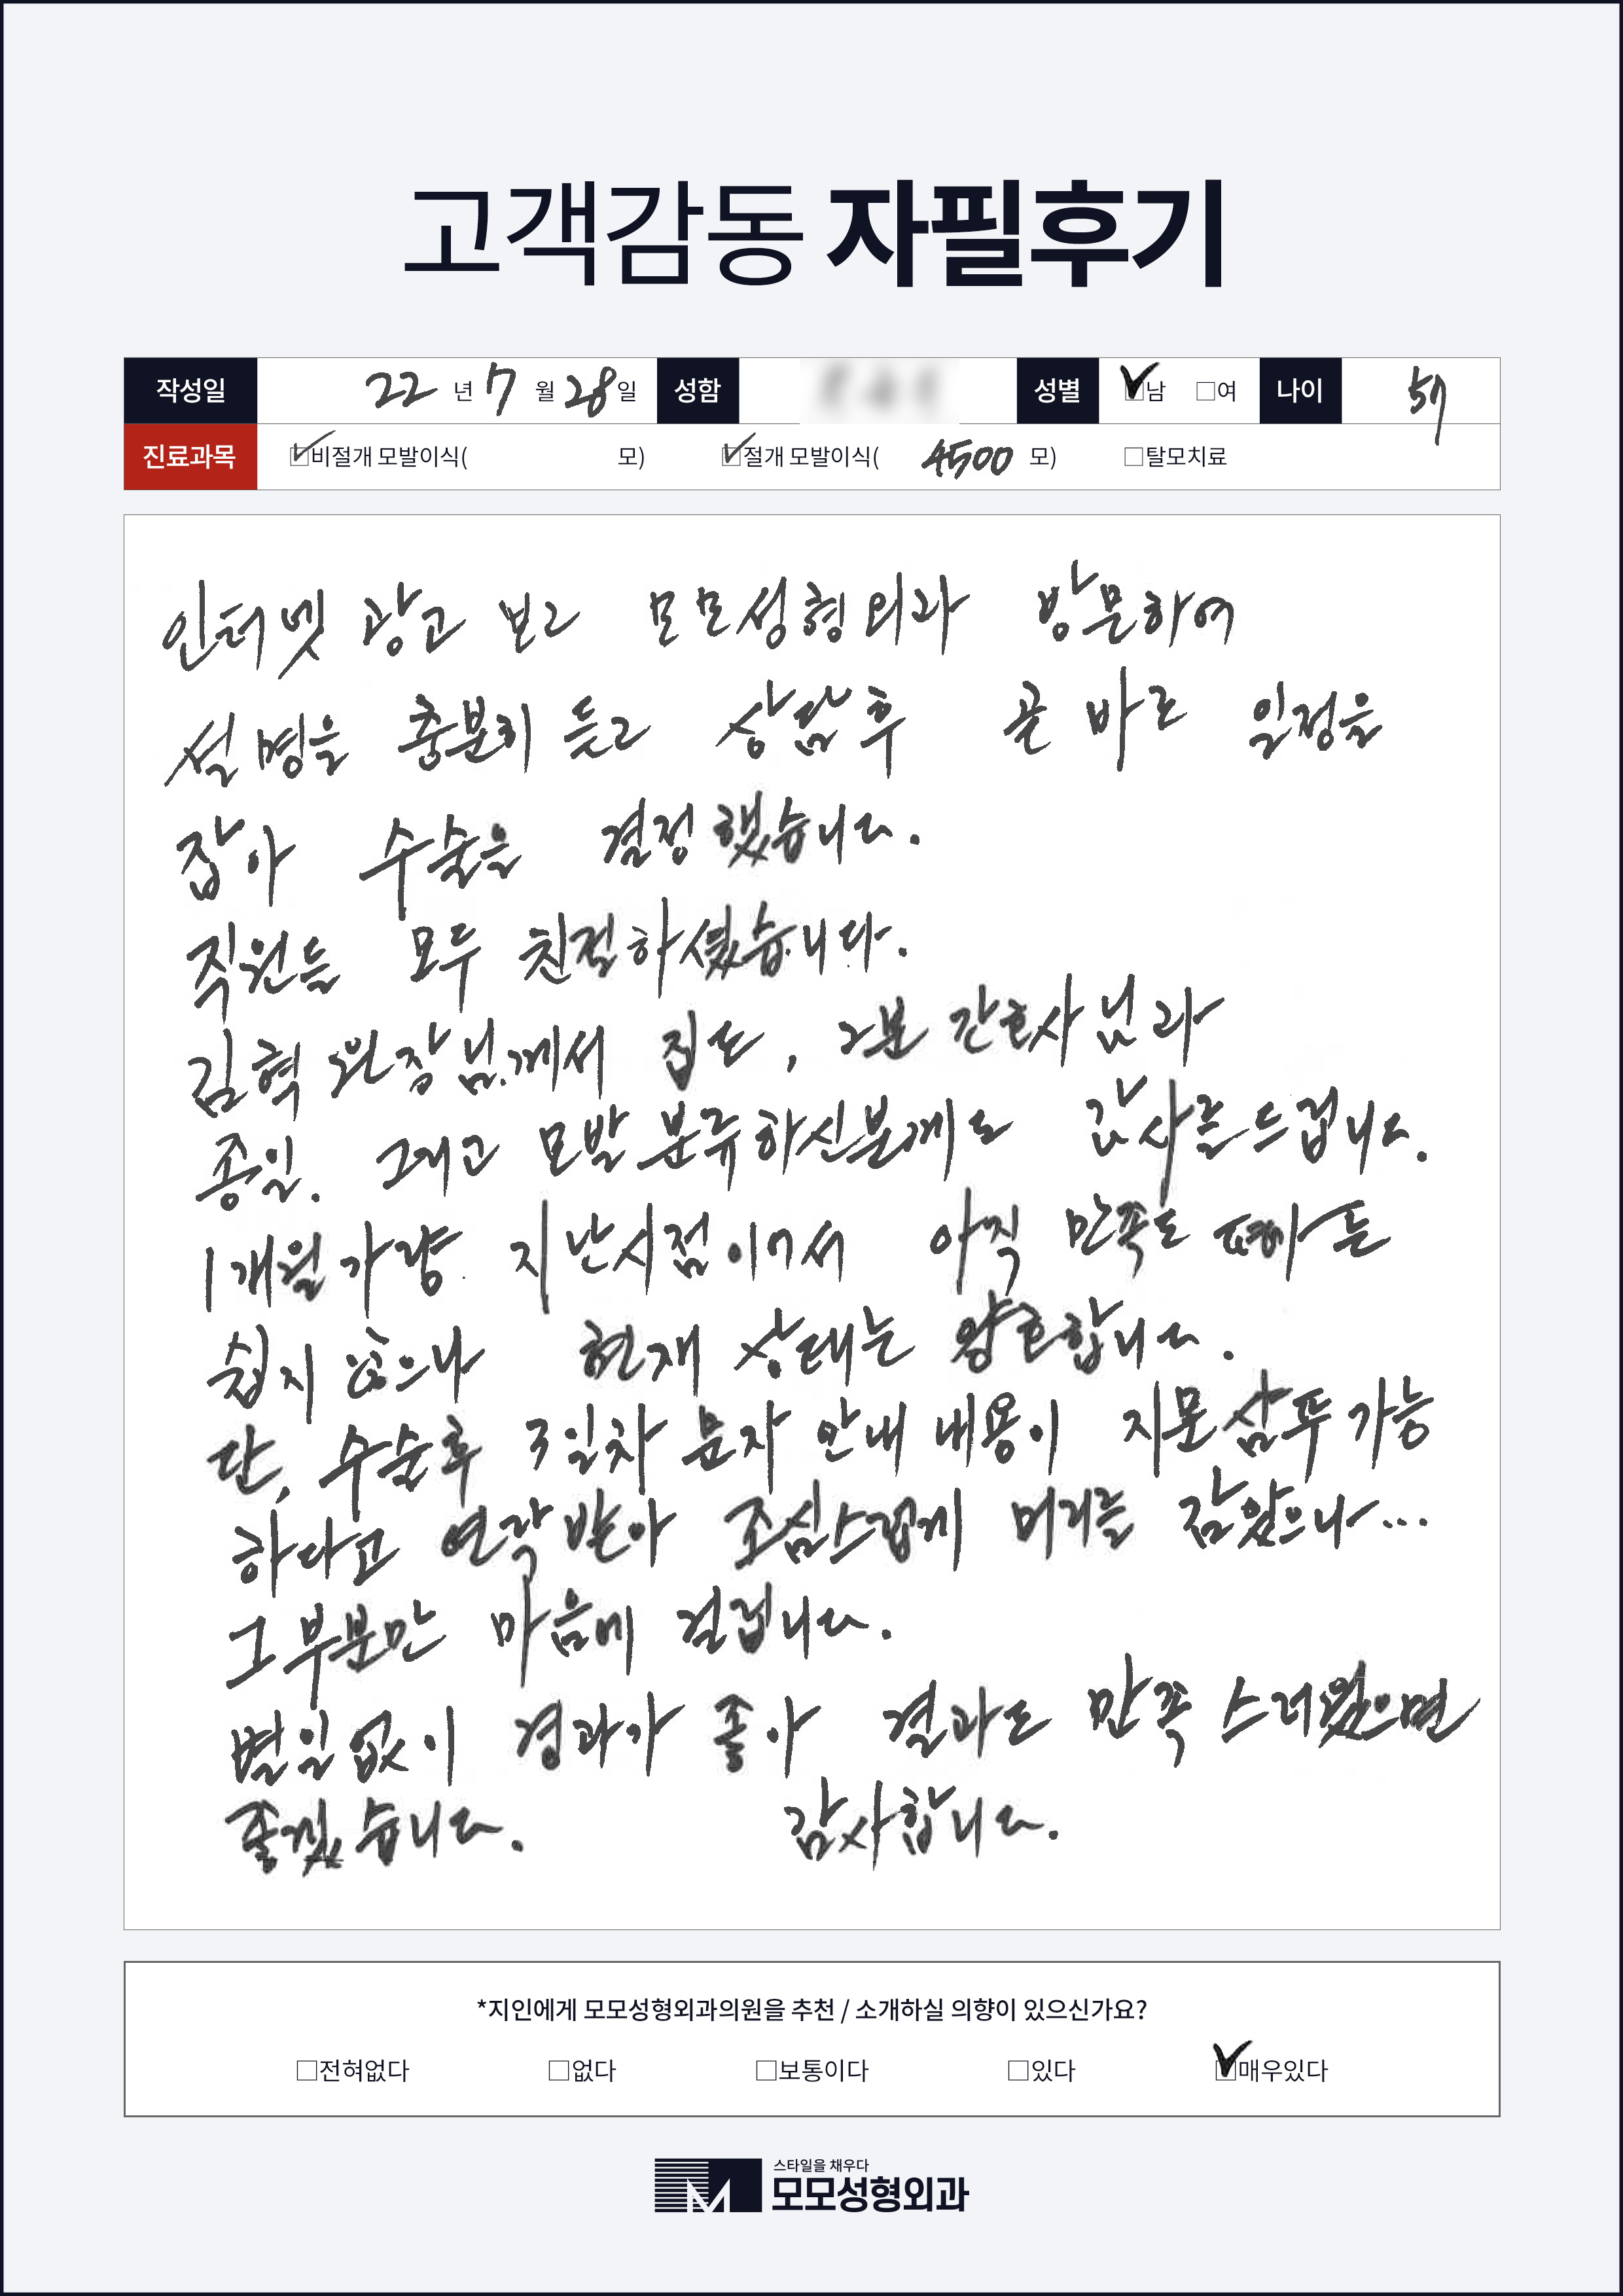 고객감동 자필후기
작성일 22 년 7 월 28 일 성함 성별 ☑남 □여 나이 57
진료과목 ☑비절개 모발이식( 모) ☑절개 모발이식( 4500 모) □탈모치료
인터넷 광고 보고 모모성형외과 방문하여
설명을 충분히 듣고 상담후 곧 바로 일정을
잡아 수술을 결정했습니다.
직원들 모두 친절하셨습니다.
김혁 원장님께서 집도, 2분 간호사님과
종일. 그리고 모발 분류하신분께도 감사를 드립니다.
1개월 가량 지난시점이어서 아직 만족도
쉽지 않으나 현재 상태는 양호합니다.
단, 수술후 3일차 문자 안내 내용이 지문샴푸 가능
하다고 연락 받아 조심스럽게 머리를 감았으나...
그 부분만 마음에 걸립니다.
별일없이 경과가 좋아 결과도 만족스러웠으면
좋겠습니다. 감사합니다.
*지인에게 모모성형외과의원을 추천 / 소개하실 의향이 있으신가요?
□전혀없다 □없다 □보통이다 □있다 ☑매우있다
스타일을 채우다
모모성형외과